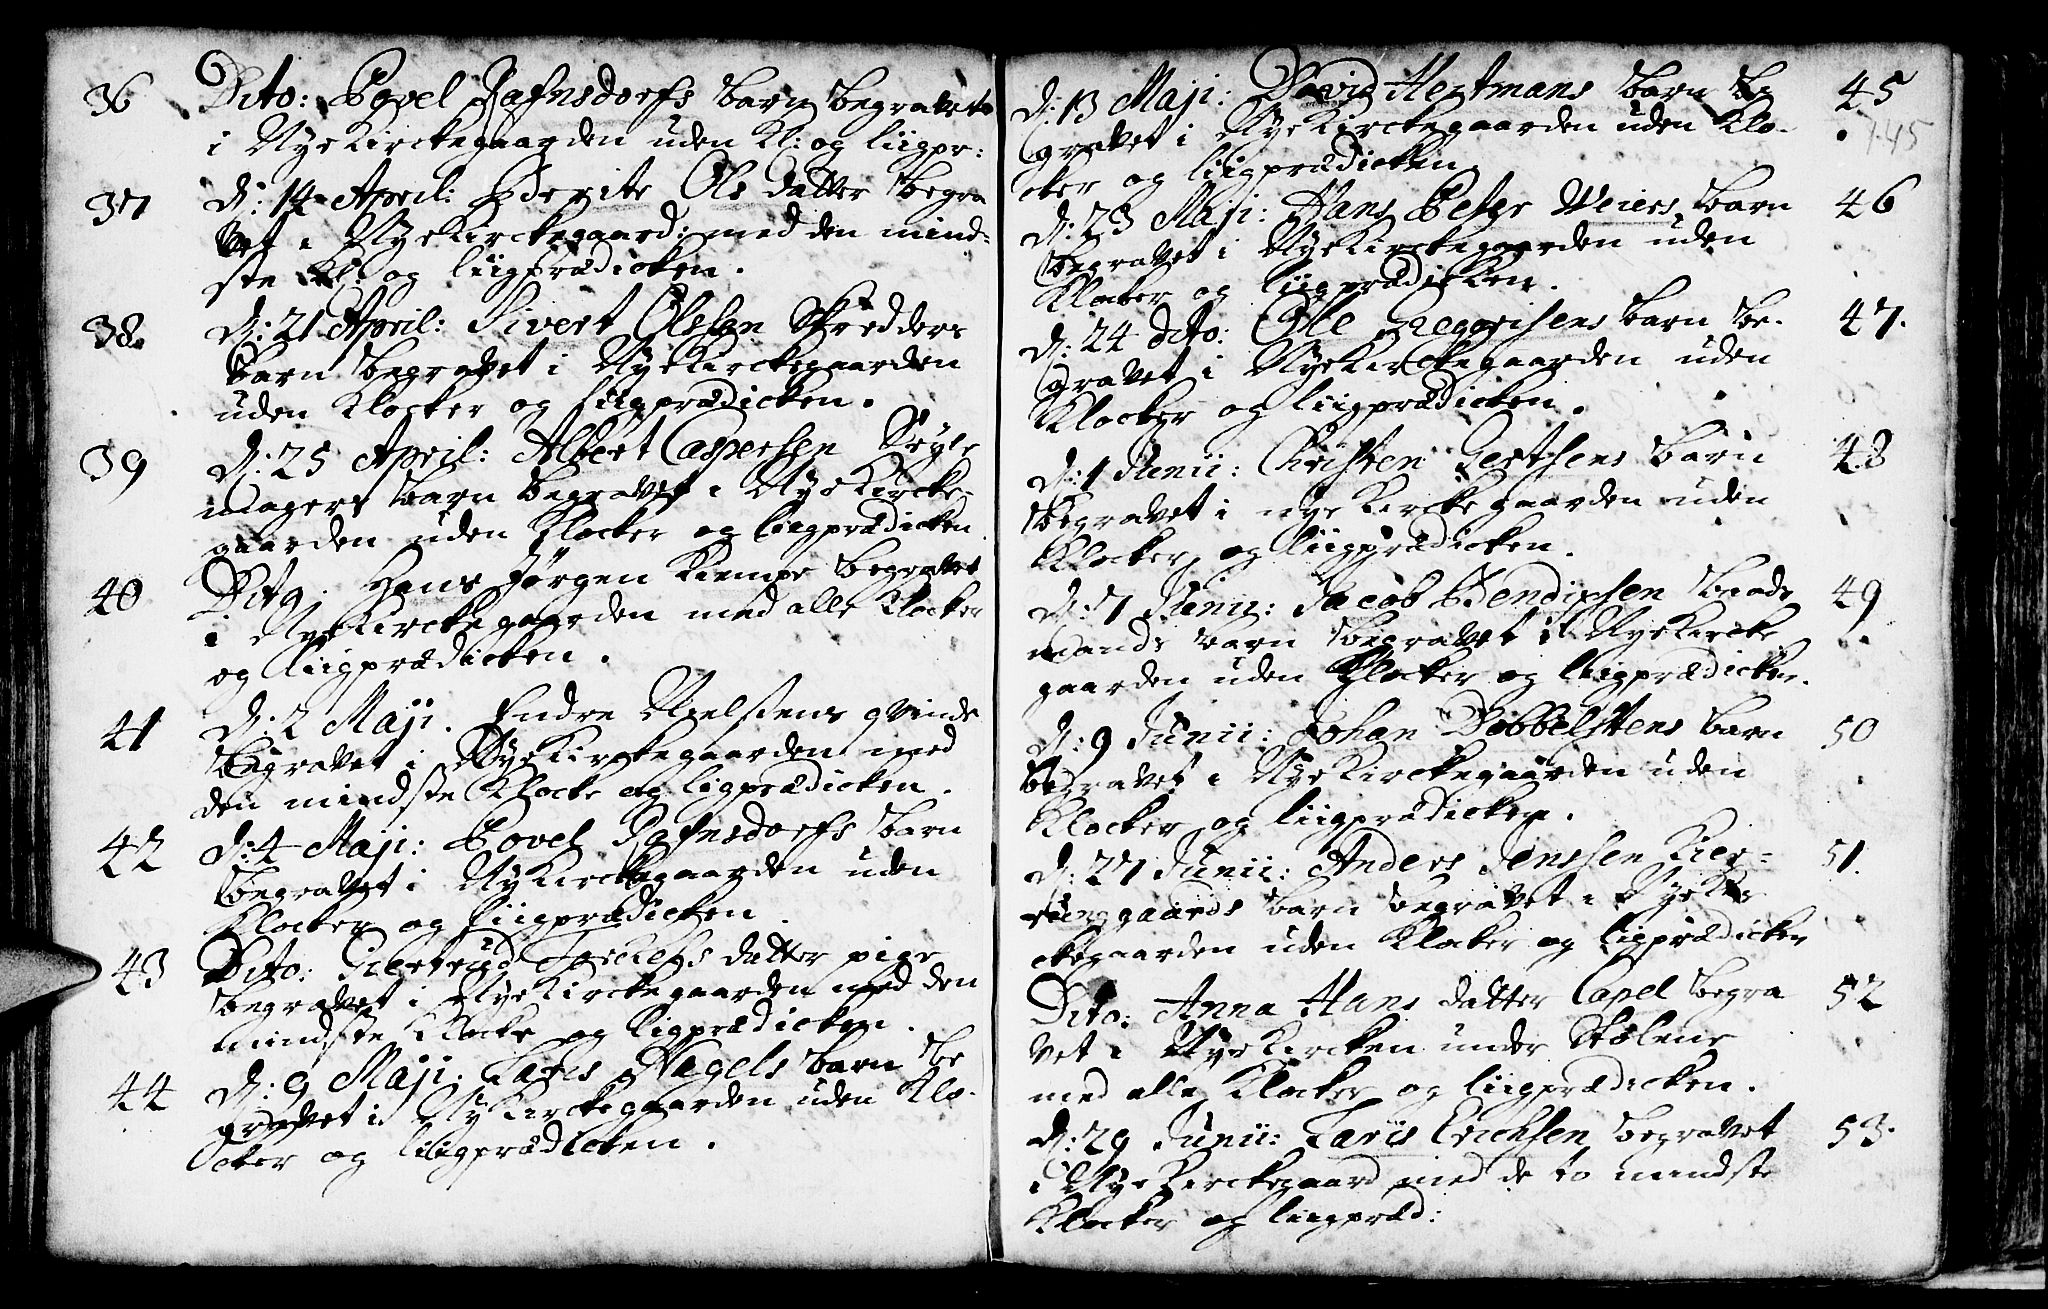 36 Dito: Povel Rafnsdorfs barn begravet
i Nye Kirckegaarden uden Kl: og liigpr:
37 D: 14 April: Ole datter Begra
vet i Nye Kirckegaard: med den mind-
ste Kl: og liigprædicken.
38. D: 21 April: Sivert Olssen Skredders
barn begravet i Nye Kirckegaarden
uden Klocker og liigprædicken.
39 D: 25 April: Albert Caspersen Seyle
magers barn begravet i Nye Kircke-
gaarden uden Klocker og liigprædicken.
40 Dito. Hans Jørgen Kiempe begravet
i Nye Kirckegaarden med alle Klocker
og liigprædicken.
41 D: 2 Maji. Endre Nielsens qvinde
Begravet i Nye Kirckegaarden med
den mindste Klocke og ligprædicken.
42 D: 4 Maji: Povel Rafnsdorfs barn
Begravet i Nye Kirckegaarden uden
Klocker og liigprædicken.
43 Dito: Giertrud datter pige
Begravet i Nye Kirckegaarden med den
mindste Klocke og ligprædicken.
44 D: 9 Maji: Lars Nagels barn be
gravet i Nye Kirckegaarden uden Klo-
cker og liigprædicken.
D: 13 Maji: David Hertmans barn be 45
gravet i Nye Kirckegaarden uden Klo- 145
cker og liigprædicken.
D: 23 Maji: Hans Peter Meiers barn 46
Begravet i Nye Kirckegaarden uden
Klocker og liigprædicken.
D: 24 dito: Ole Greggerisens barn be- 47.
gravet i Nye Kirckegaarden uden
Klocker og liigprædicken.
D: 1 Junii: Christen Gertsens barn 48
Begravet i nye Kirckegaarden uden
Klocker og liigprædicken.
D: 7 Junii: Jacob Bendixsen baads 49
mands barn begravet i Nye Kircke
gaarden uden Klocker og liigprædicken.
D: 9 Junii: Johan Dobbelstens barn 50
Begravet i Nye Kirckegaarden uden
Klocker og liigprædicken.
D: 27 Junii: Anders Jenssen Kier- 51.
barn begravet i Nye Kir
ckegaarden uden Klocker og ligprædicken
Dito: Anna Hans datter Capel begra 52
vet i Nye Kircken under Stolene
med alle Klocker og liigprædicken.
D: 29 Junii: Laris Erichsen begravet 53.
i Nye Kirckegaard med de to mindste
Klocker og liigpræd: